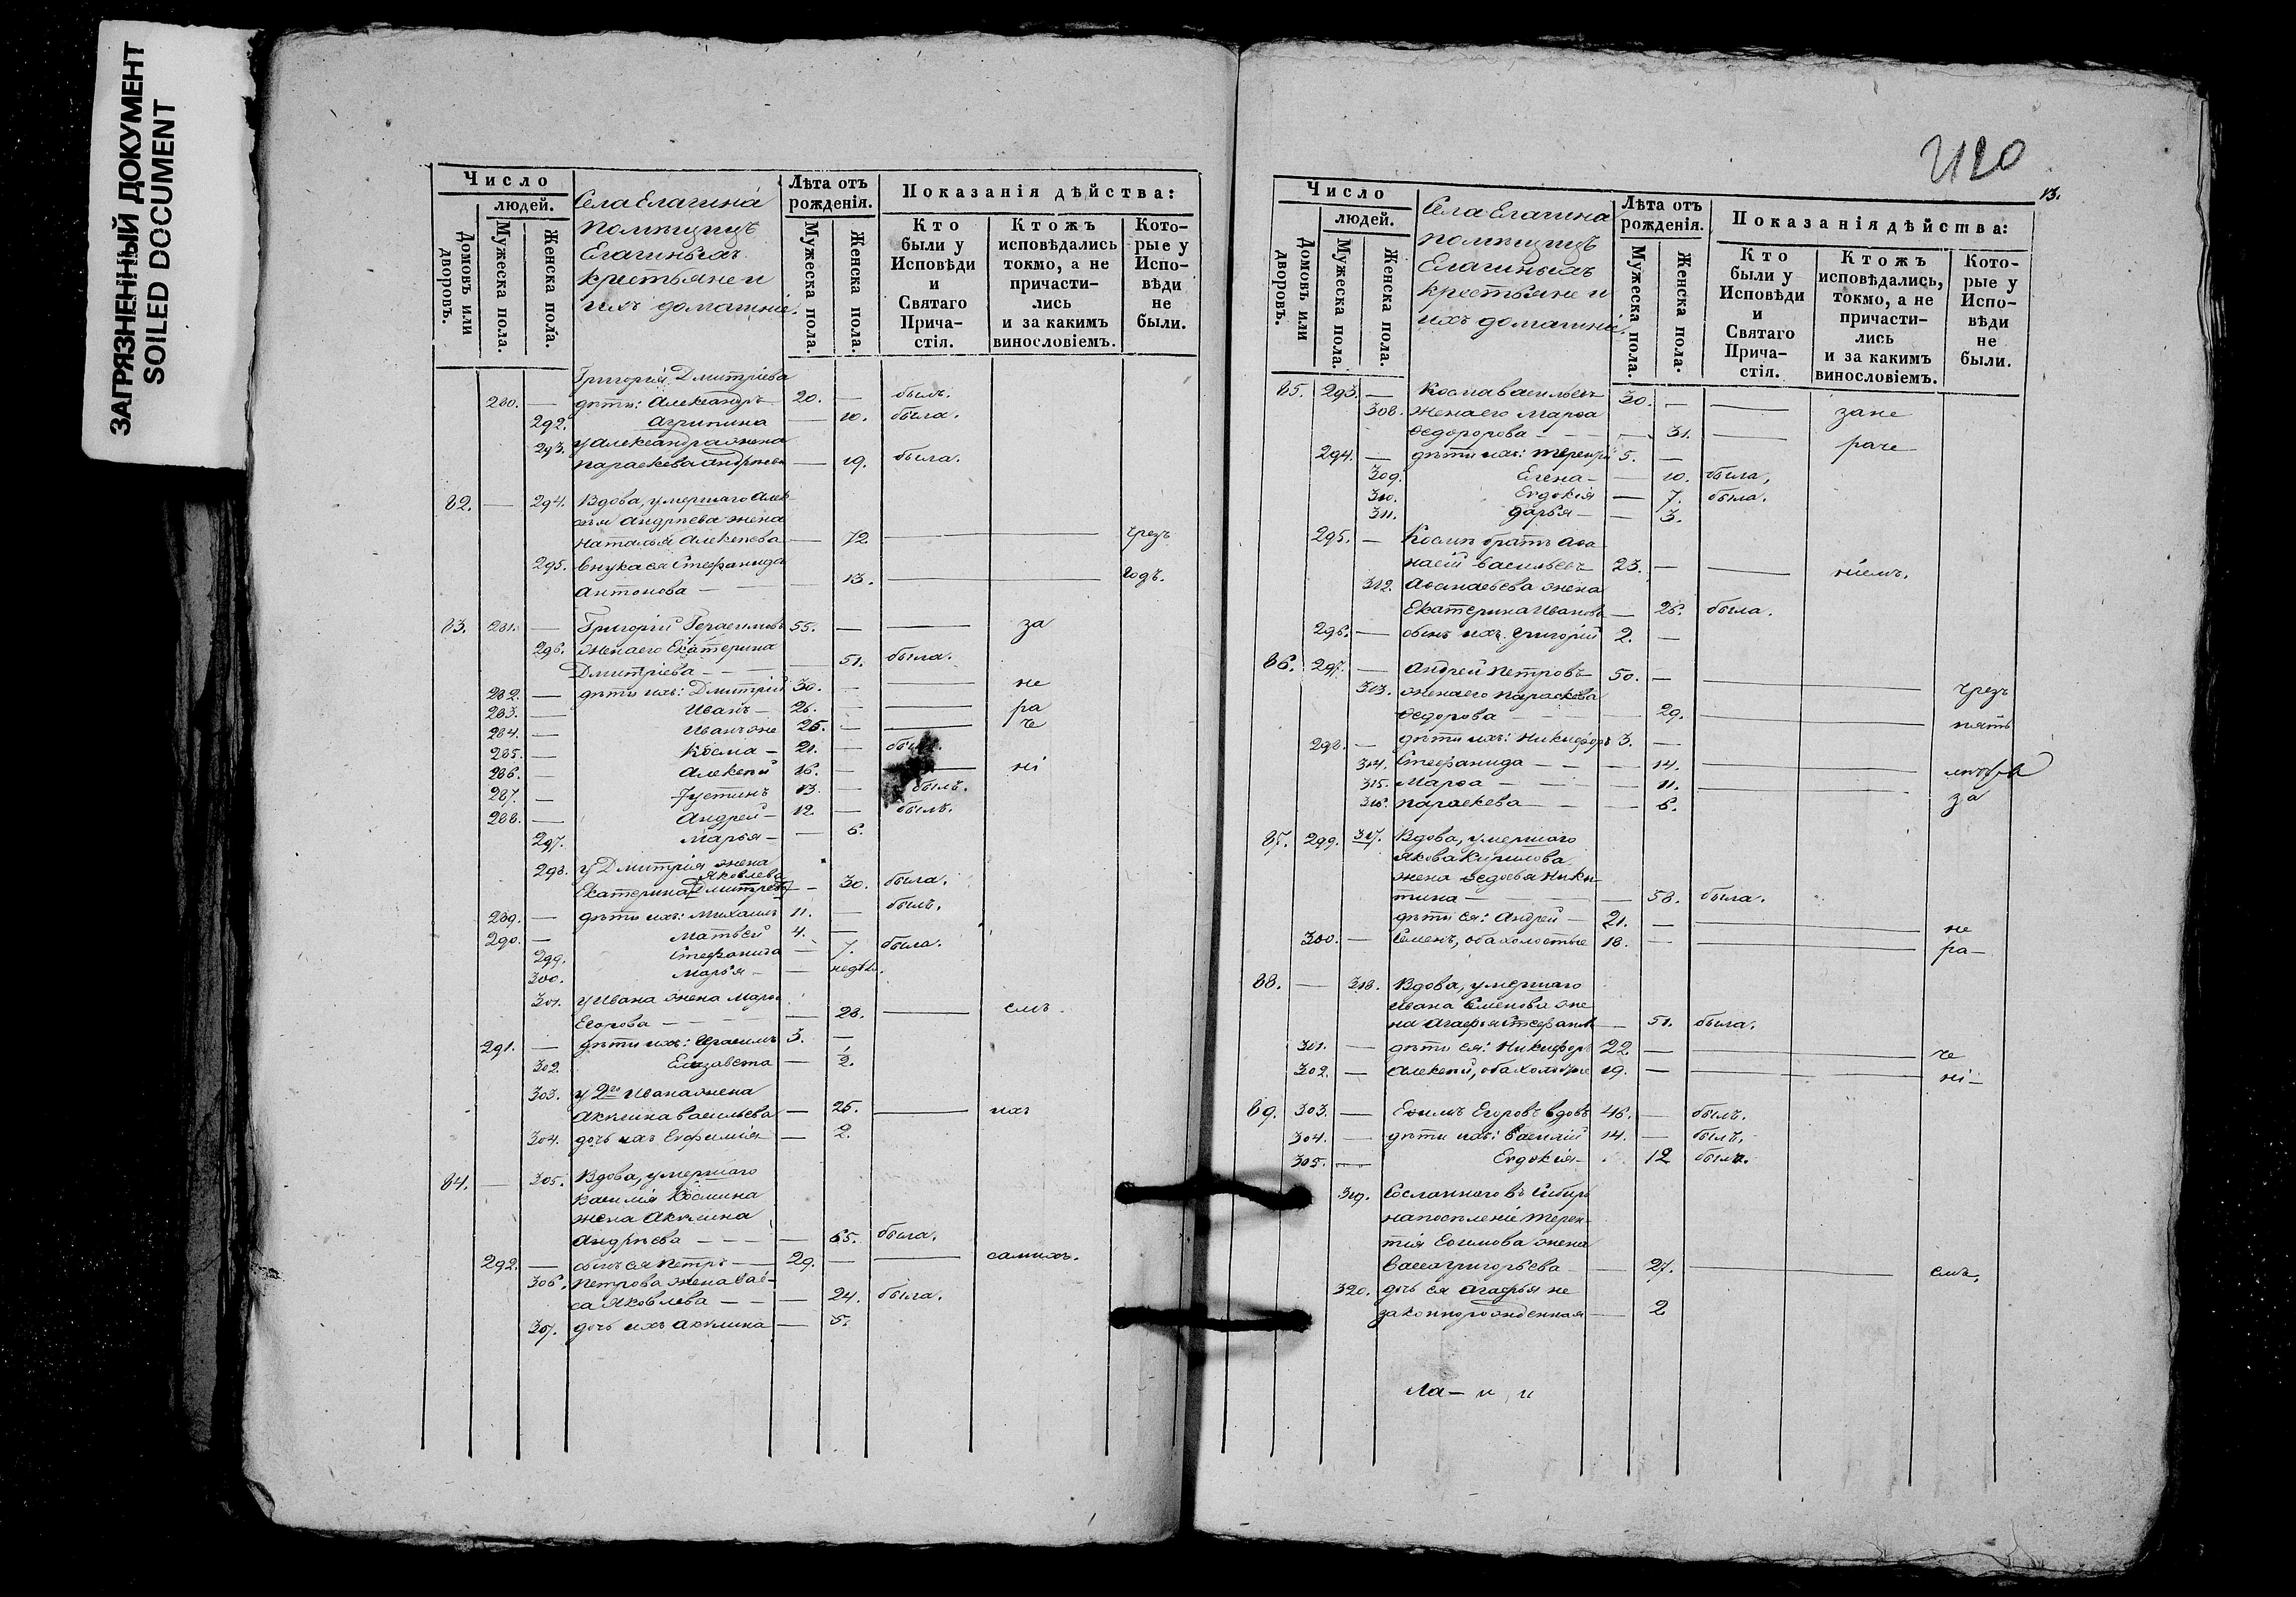 ЗАГРЯЗНЕННЫЙ ДОКУМЕНТ
SOILED DOCUMENT
Число
людей.
Домовъ или дворовъ.
Мужеска пола.
Женска пола.
Села Елагина
помѣщицъ
Елагиныхъ
крестьяне и
ихъ домашніе.
Лѣта отъ рожденія.
Мужеска пола.
Женска пола.
Показанія дѣйства:
Кто были у Исповѣди и Святаго Причастія.
Ктожъ исповѣдались токмо, а не причастились и за какимъ винословіемъ.
Которые у Исповѣди не были.
Григорія Дмитріева
280. — дѣти: Александръ 20. — былъ.
292. Агрипина — 10. была.
293. у Александра жена
Параскева Андрѣева — 19. была.
82. — 294. Вдова, умершаго Алек-
ѣя Андрѣева жена
Наталья Алексѣева — 72 чрезъ
295. внука ея Стефанида
Антонова — 13. годъ.
83. 281. — Григорій Герасимовъ 55. — за
296. жена его Екатерина
Дмитріева — 51. была.
282. — дѣти ихъ: Дмитрій 30. — не
283. — Иванъ — 26. — ра
284. — Иванъ же 25. — че
285. — Косма — 21. —
286. — Алексѣй 16. — ні
287. — Іустинъ 13. — былъ.
288. — Андрей — 12 — былъ.
297. Марья — 6.
298. у Дмитрія жена
Яковлева
Екатерина Дмитрев — 30. была.
289. — дѣти ихъ: Михаилъ 11. — былъ.
290. — Матвей 4. —
299. Стефанида — 7. была.
300. Марья — недѣл.
301. у Ивана жена Марѳа
Егорова — 28. емъ.
291. — дѣти ихъ: Герасимъ 3. —
302. Елизавета — 1/2.
303. у 2го Ивана жена
Акулина Васильева — 25. ихъ
304. дочь ихъ Евфимія — 2.
84. — 305. Вдова, умершаго
Василія Космина
жена Акулина
Андрѣева — 65. была.
292. — сынъ ея Петръ — 29. — самихъ.
306. Петрова жена Вас-
са Яковлева — 24. была.
307. дочь ихъ Акулина — 5.
420
13.
Число
людей.
Домовъ или дворовъ.
Мужеска пола.
Женска пола.
Села Елагина
помѣщицъ
Елагиныхъ
крестьяне и
ихъ домашніе.
Лѣта отъ рожденія.
Мужеска пола.
Женска пола.
Показанія дѣйства:
Кто были у Исповѣди и Святаго Причастія.
Ктожъ исповѣдались, токмо, а не причастились и за какимъ винословіемъ.
Которые у Исповѣди не были.
85. 293. — Косма Васильевъ 30. — зане
308. жена его Марѳа
Ѳедоророва — 31. раче
294. — дѣти ихъ: Терентій 5. —
309. Елена — 10. была,
310. Евдокія — 7. была.
311. Дарья — 3.
295. — Космы братъ Аѳа
насій Васильевъ 23. — ніемъ.
312. Аѳанасьева жена
Екатерина Иванов — 26. была.
296. — сынъ ихъ Григорій 2. —
86. 297. — Андрей Петровъ 50. — чрезъ
313. жена его Параскева
Ѳедорова — 29. пять
298. — дѣти ихъ: Никифоръ 3. —
314. Стефанида — 14. лѣтъ
315. Марѳа — 11. за
316. Параскева — 6.
87. 299. 317. Вдова, умершаго
Якова Кирилова
жена Ѳедосья Ники-
тина — 58. была.
дѣти ея: Андрей — 21. — не
300. — Семенъ, оба холостые 18. — ра—
88. — 318. Вдова, умершаго
Ивана Семенова же
на Агафья Стефанов — 51. была.
301. — дѣти ея: Никифоръ 22 — че
302. — Алексѣй, оба холостые 19. — ні—
89. 303. — Еѳимъ Егоровъ вдовъ 46. — былъ.
304. — дѣти ихъ: Василій 14. — былъ.
305. — Евдокія — 12 была.
319. Сосланнаго въ Сибирь
на поселеніе Терен-
тія Еѳимова жена
Васса Григорьева — 27. емъ.
320. дочь ея Агафья не
законнорожденная — 2